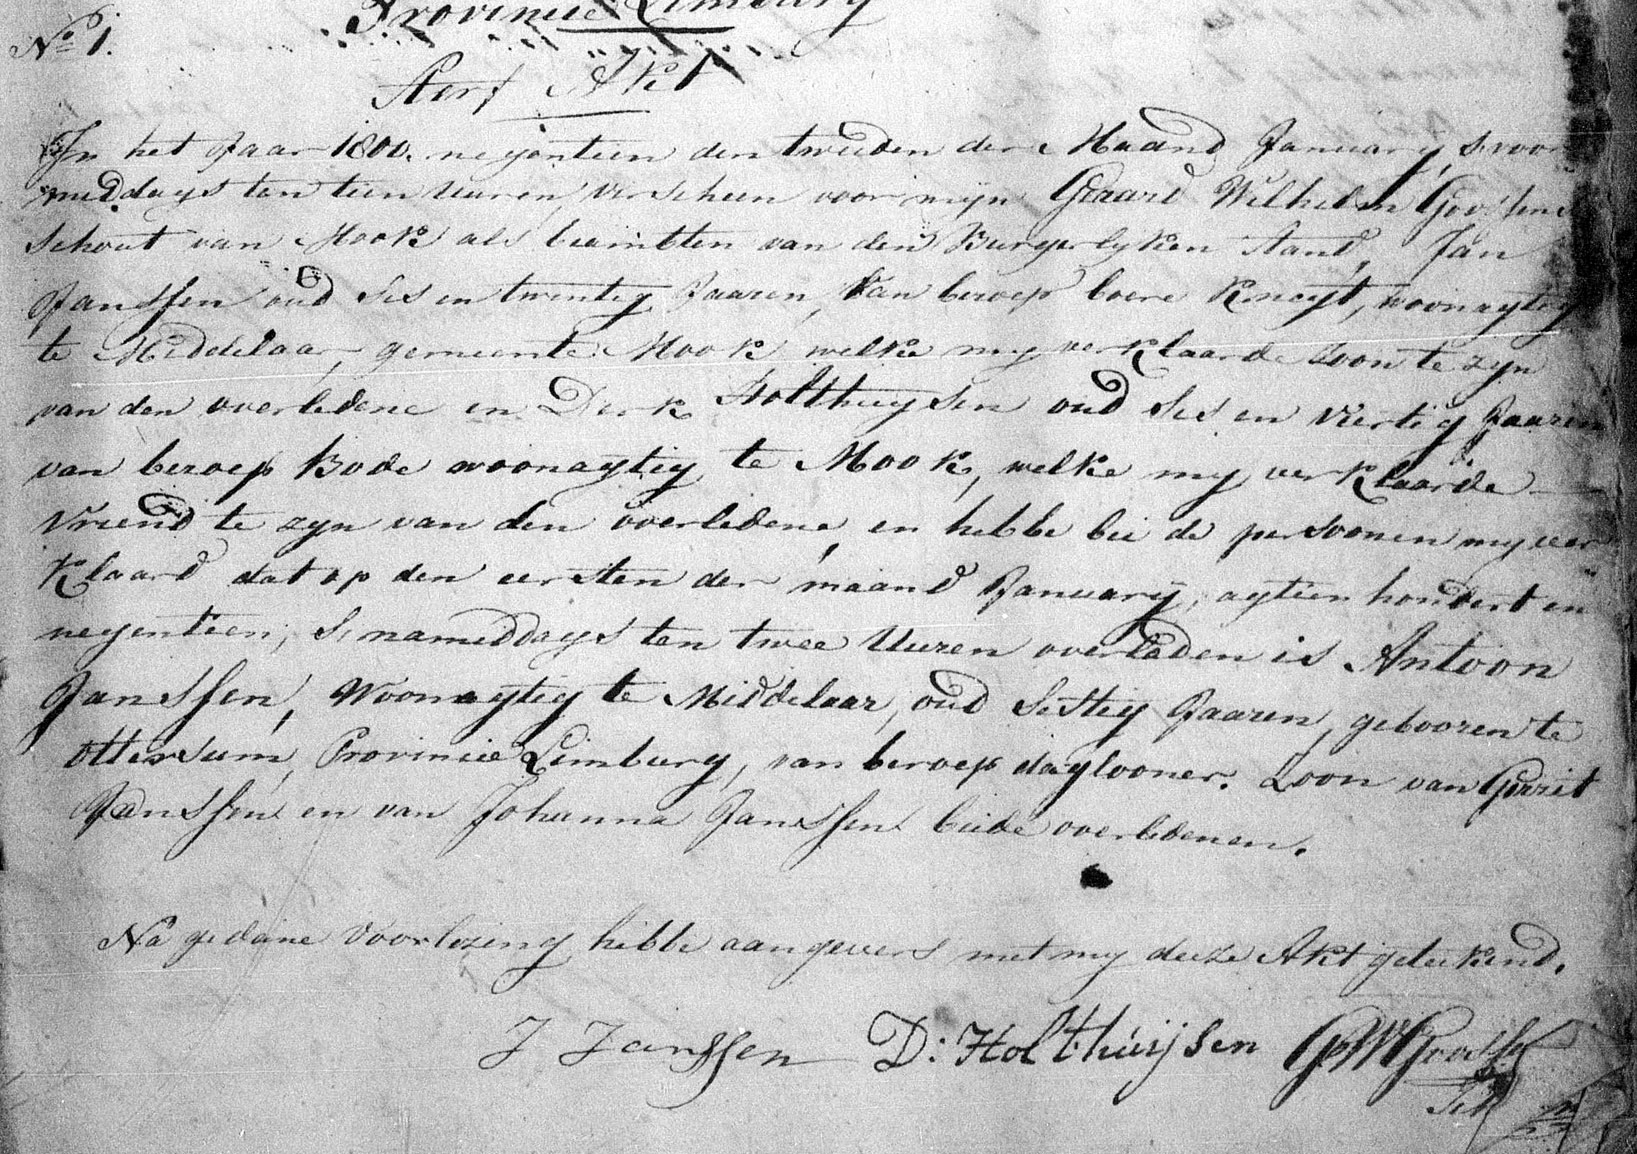 Provincie Limburg
No 1.
Sterf Akt
In het Jaar 1800. negenteen den tweeden der Maand January, s'voor
middags ten tien uuren, verscheen voor mijn Graard Wilhelm Goossens
schout van Mook als beambten van den Burgerlyken stand, Jan
Janssen oud ses en twintig Jaaren, van beroep boere Knegt, woonagtig
te Middelaar, gemeente Mook, welke my verklaarde Zoon te zyn
van den overledene en Derk Holthuysen oud ses en viertig Jaaren
van beroep Bode woonagtig te Mook, welke my verklaarde
vriend te zyn van den overledene, en hebbe bei de persoonen my ver
klaard dat op den eersten der maand January, agtien hondert en
negentien, s, nameddags ten twee Uuren overleden is Antoon
Janssen, Woonagtig te Middelaar, oud sestig Jaaren, gebooren te
ottersum, Provincie Limburg, van beroep daglooner. Zoon van Gerrit
Janssen en van Johanna Janssen beide overledenen.
Na gedane voorlezing hebbe aangevers met my deeze Akt geteekend.
J Janssen D: Holthuijsen GW